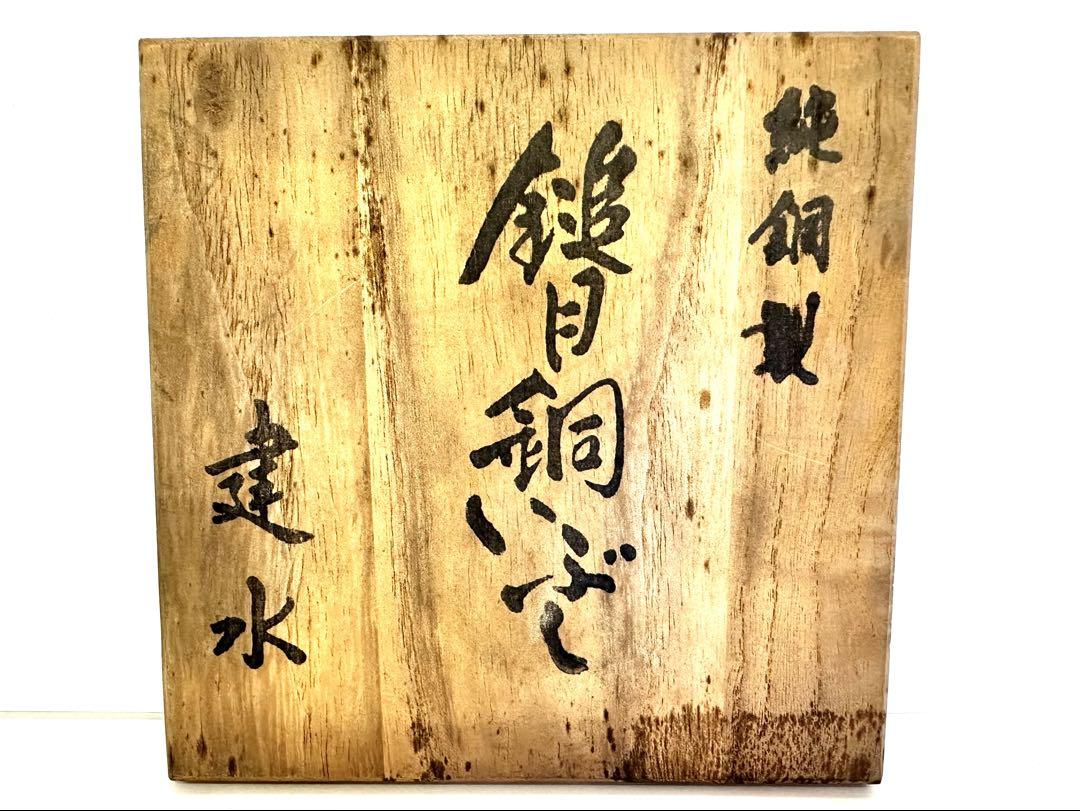 純銅製
鎚目銅いぶし
建水